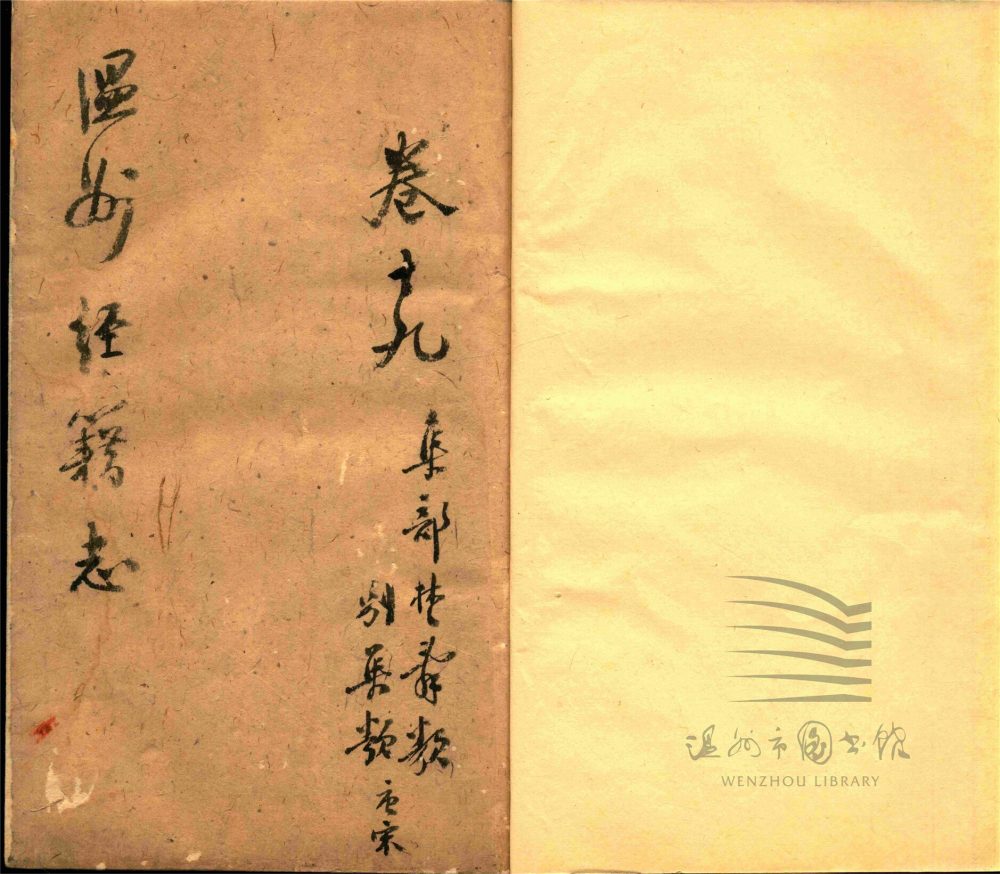 溫州經籍志
卷十九
集部楚辭類
別集類唐宋
温州市图书馆
WENZHOU LIBRARY